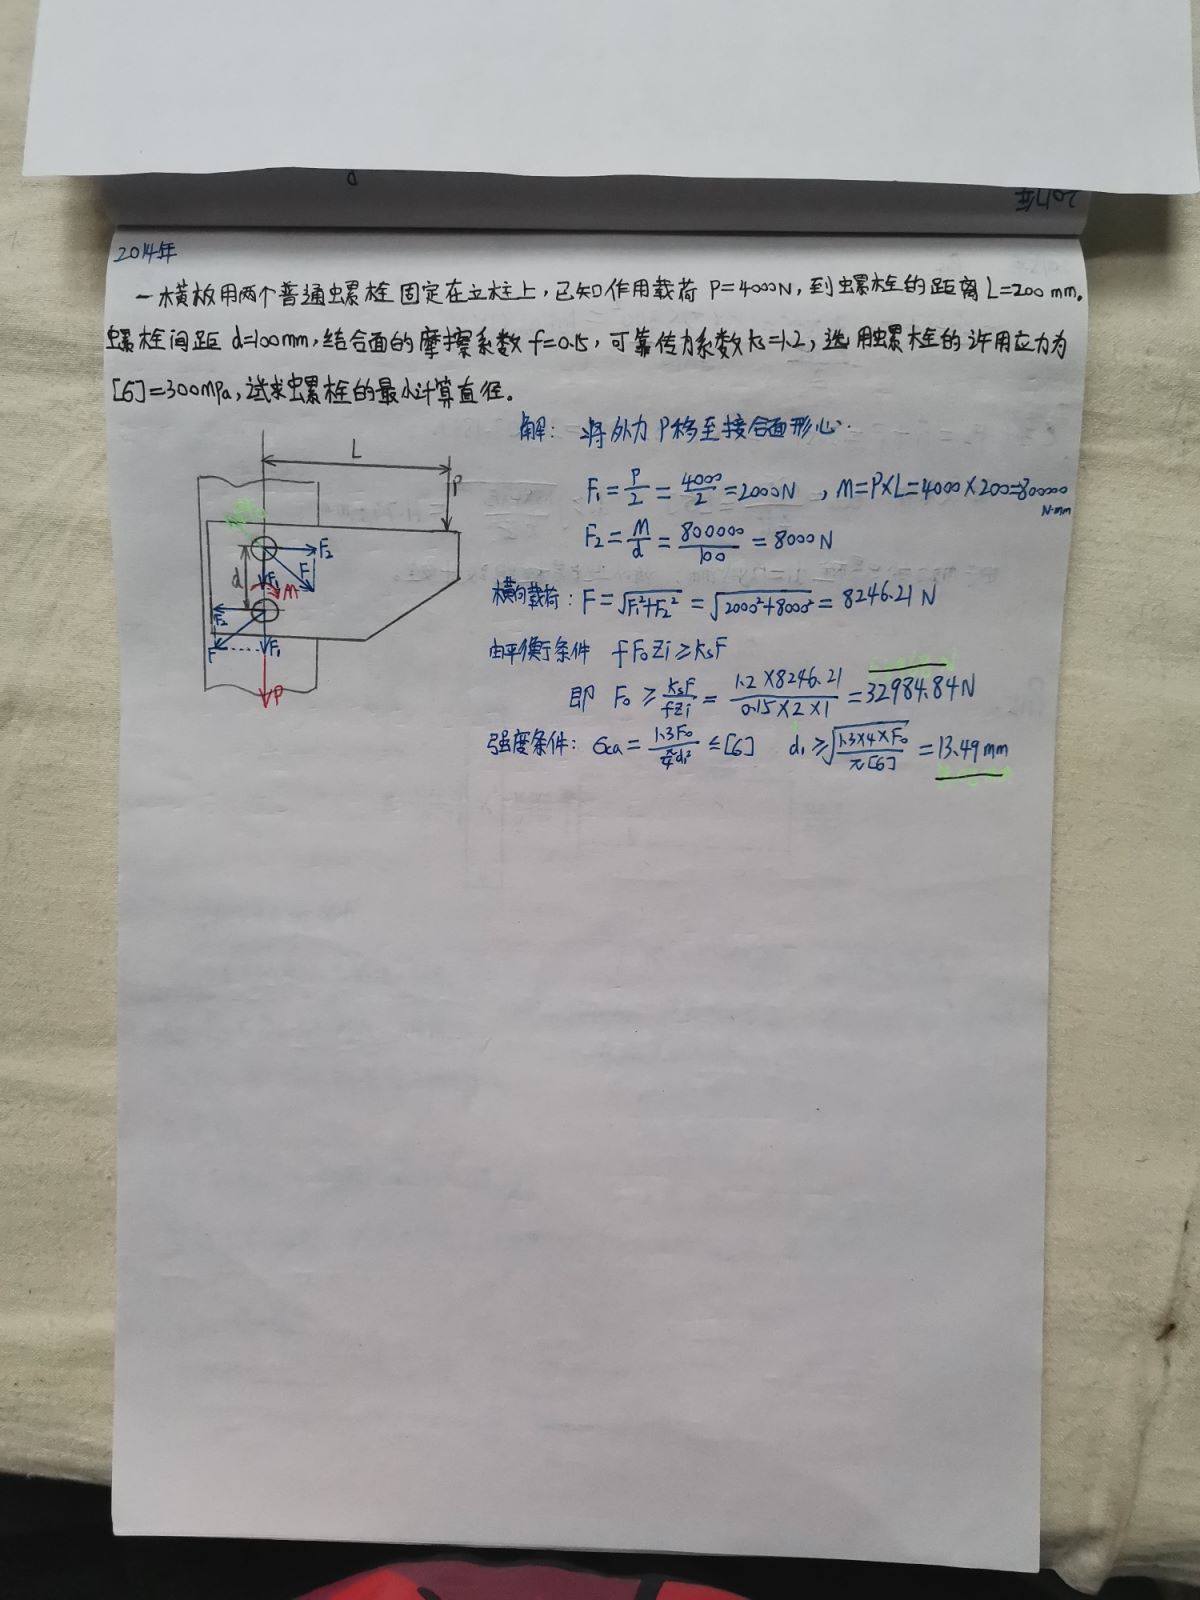 2017年
2014年
一横板用两个普通螺栓固定在立柱上,已知作用载荷 P=4000N,到螺栓的距离 L=200mm.
螺栓间距 d=100mm,结合面的摩擦系数 f=0.15,可靠传力系数ks=1.2,选用螺栓的许用应力为
[σ]=300MPa,试求螺栓的最小计算直径。
解: 将外力 P移至接合面形心.
F₁=P/2=4000/2=2000N ,M=P×L=4000×200=800000
N·mm
F₂=M/d=800000/100=8000N
横向载荷: F=√(F₁²+F₂²)=√(2000²+8000²)=8246.21N
由平衡条件 fF₀Zi≥ksF
即 F₀≥ksF/fZi=1.2×8246.21/0.15×2×1=32984.84N
强度条件: σca=1.3F₀/(π/4 d₁²)≤[σ] d₁≥√(1.3×4×F₀/π[σ])=13.49mm
L
P
F₂
F
d
F₁
M
F₂
F
F₁
P